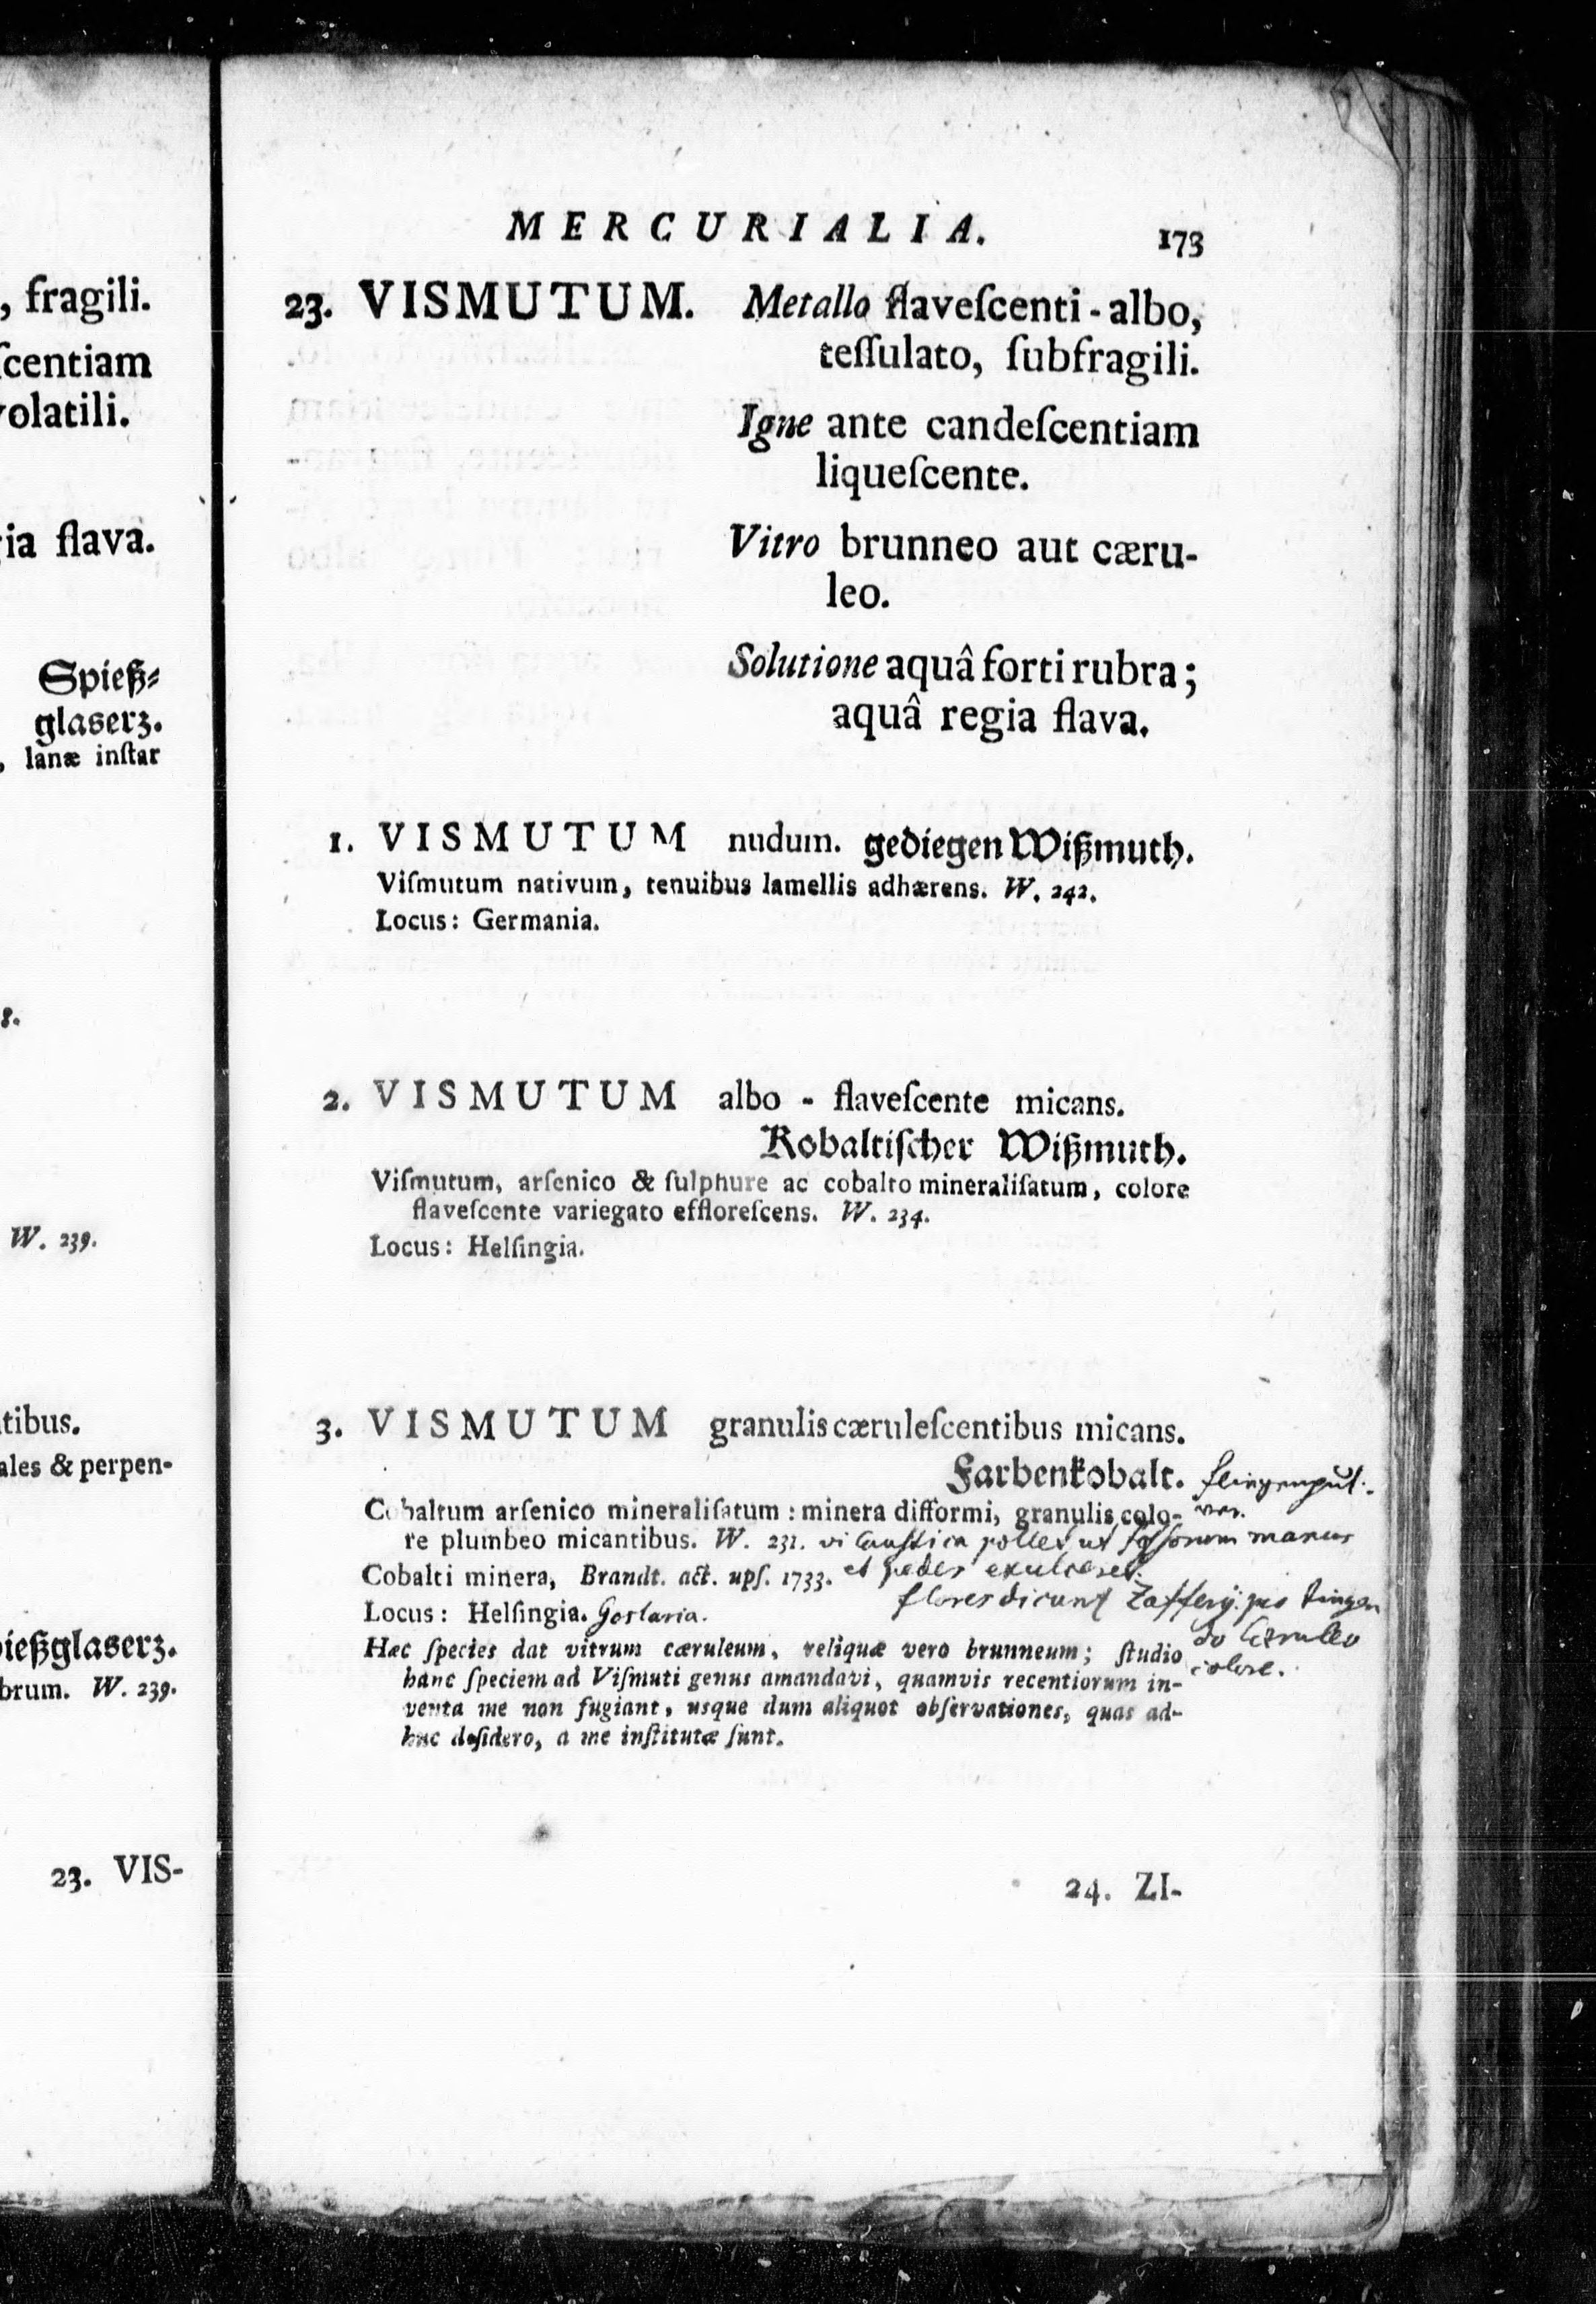 , fragili.
ſcentiam
volatili.
gia flava.
Spieß-
glaserz.
, lanæ inſtar
8.
W. 239.
tibus.
ales & perpen-
ießglaserz.
brum. W. 239.
23. VIS-
MERCURIALIA. 173
23. VISMUTUM. Metallo flaveſcenti-albo,
teſſulato, ſubfragili.
Igne ante candeſcentiam
liqueſcente.
Vitro brunneo aut cæru-
leo.
Solutione aquâ forti rubra;
aquâ regia flava.
1. VISMUTUM nudum. gediegen Wißmuth.
Viſmutum nativum, tenuibus lamellis adhærens. W. 242.
Locus: Germania.
2. VISMUTUM albo - flaveſcente micans.
Kobaltiſcher Wißmuth.
Viſmutum, arſenico & ſulphure ac cobalto mineraliſatum, colore
flaveſcente variegato effloreſcens. W. 234.
Locus: Helſingia.
3. VISMUTUM granulis cæruleſcentibus micans.
Farbenkobalt. fliegenpul-
ver.
Cobaltum arſenico mineraliſatum: minera difformi, granulis colo-
re plumbeo micantibus. W. 231. vi caustica pollet ut fossorum manus
Cobalti minera, Brandt. act. upſ. 1733. et pedes exulceret.
flores dicunt Zaffery: pro tingen
do Cæruleo
colore.
Locus: Helſingia. Goslaria.
Hæc ſpecies dat vitrum cæruleum, reliquæ vero brunneum; ſtudio
hanc ſpeciem ad Viſmuti genus amandavi, quamvis recentiorum in-
venta me non fugiant, usque dum aliquot obſervationes, quas ad-
huc deſidero, a me inſtitutæ ſunt.
24. ZI-